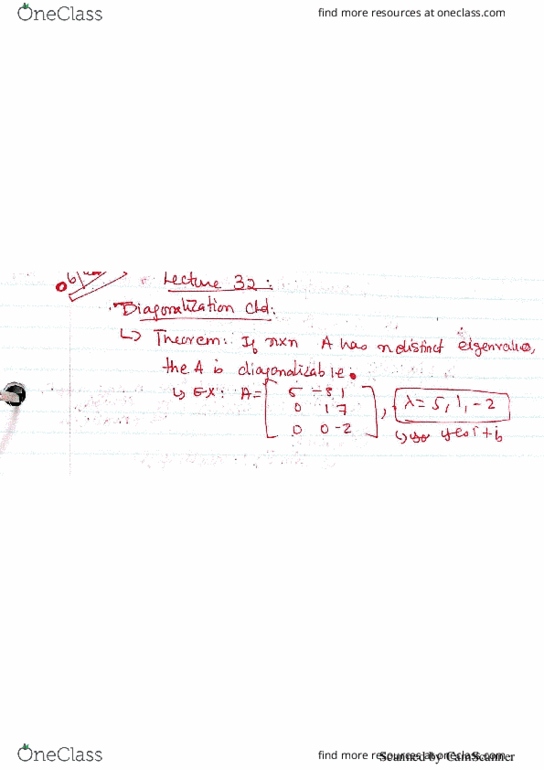 OneClass find more resources at oneclass.com
Lecture 32:
Diagonalization Ctd:
↳ Theorem: If n×n A has n distinct eigenvalues,
the A is diagonalizable.
↳ EX: A = [ 5 -8 1 , λ = 5, 1, -2
0 1 7
0 0 -2 ] ↳ so yes it is
OneClass find more resources at oneclass.com
Scanned by CamScanner